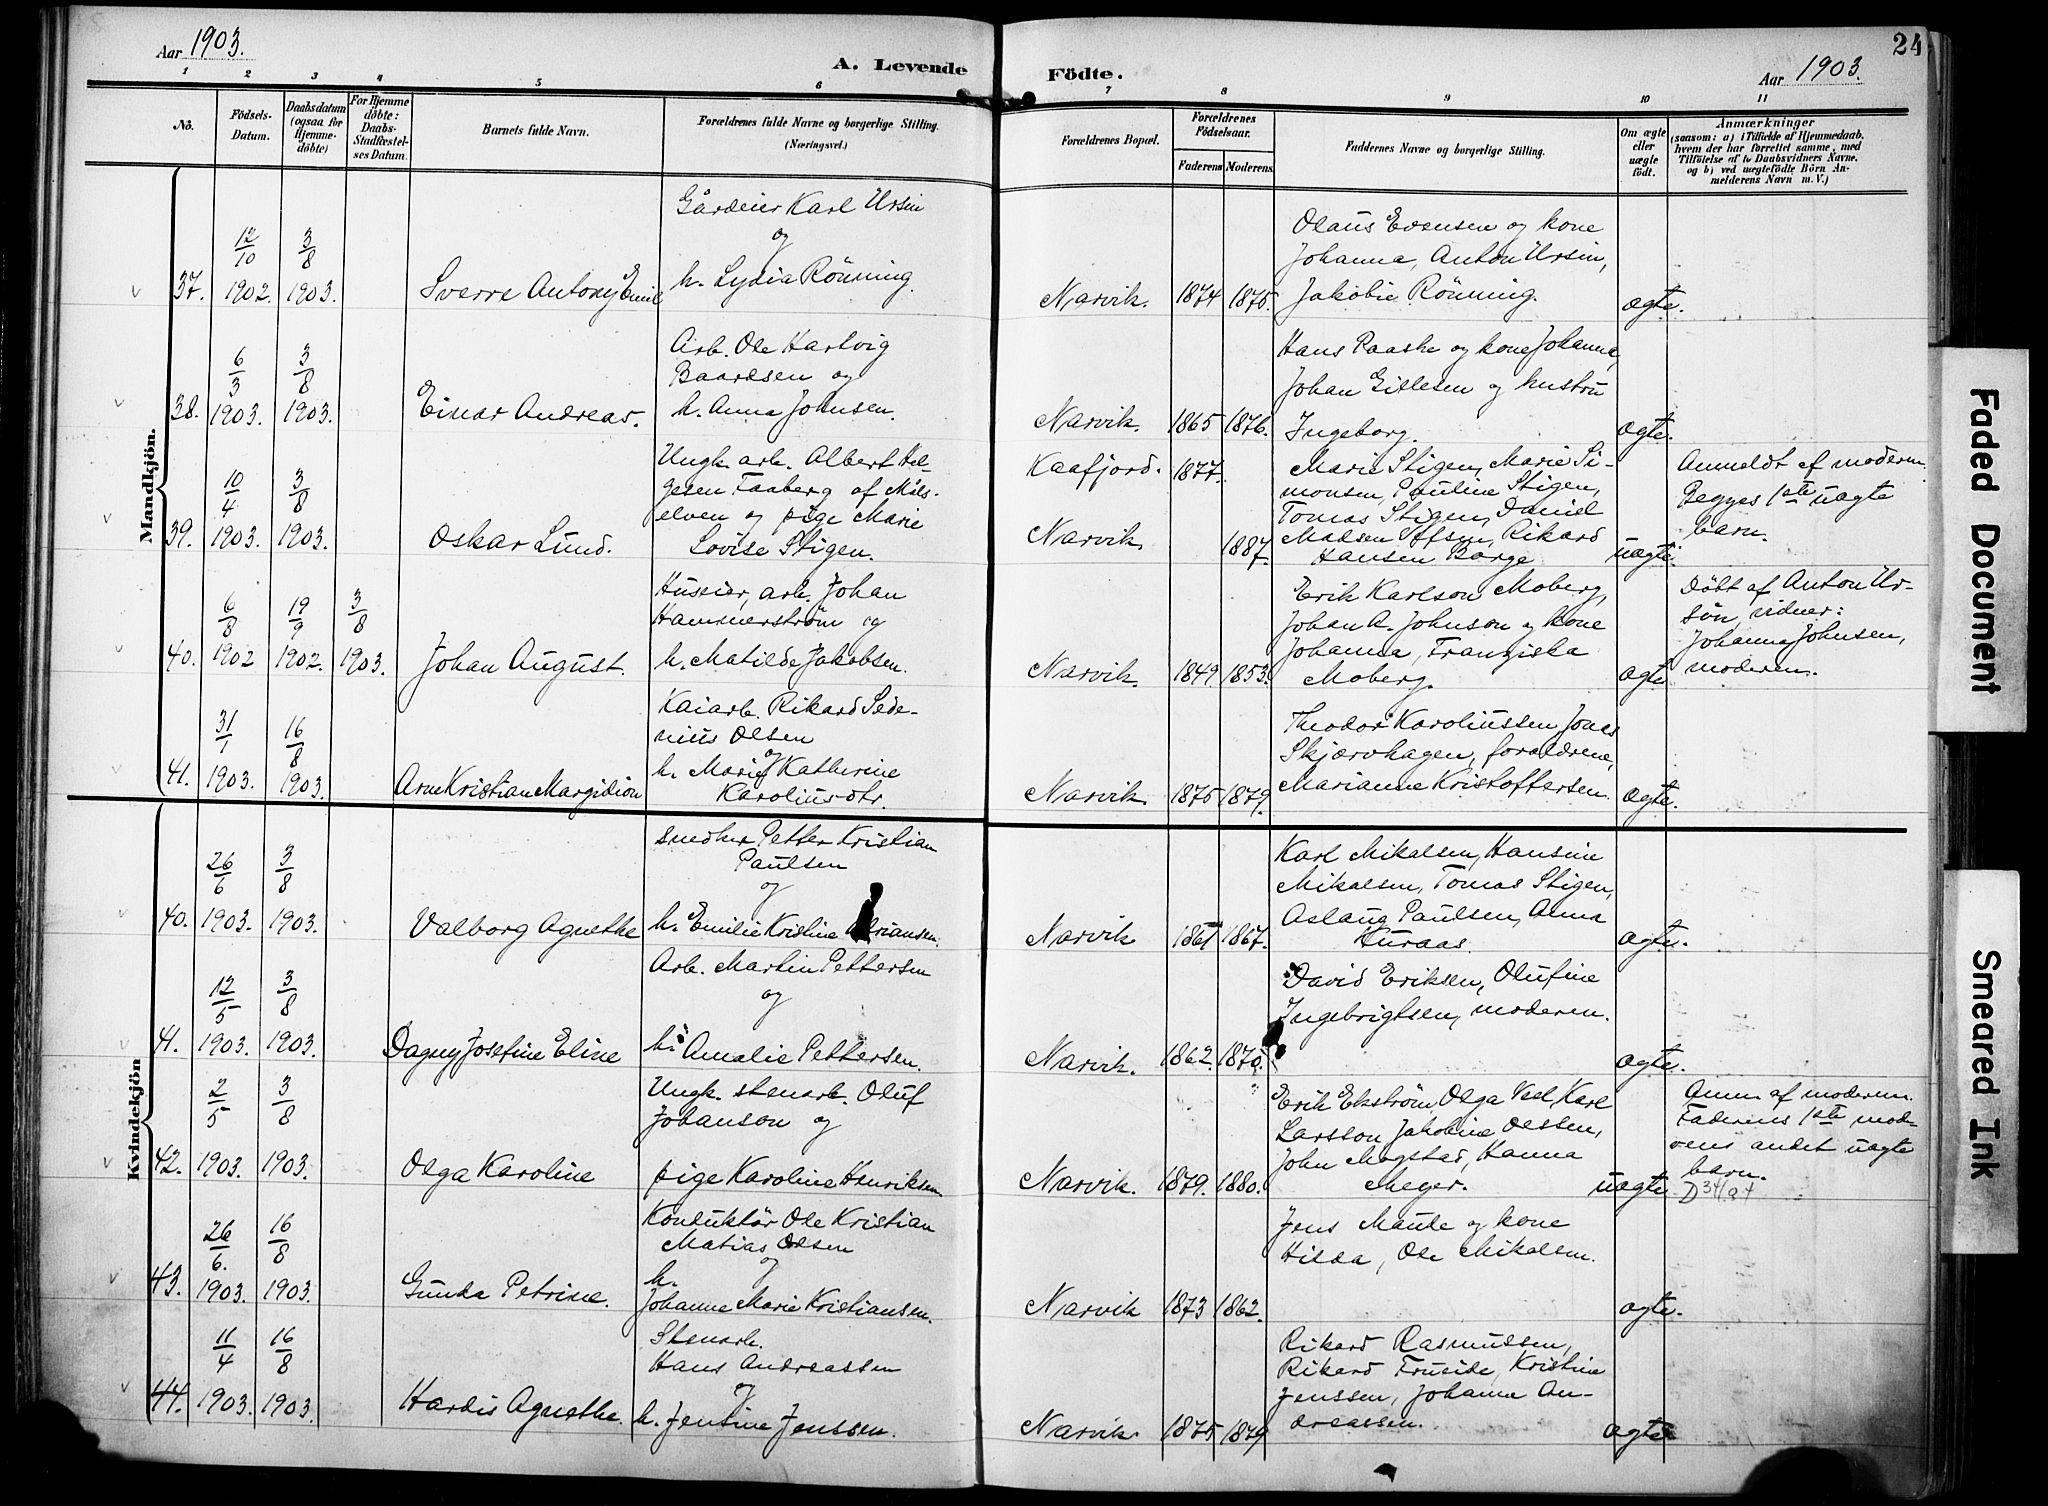 Aar 1903.
A. Levende Födte.
Aar 1903.
24
1 2 3 4 5 6 7 8 9 10 11
Nö.
Födsels-Datum.
Daabsdatum (ogsaa for Hjemme-döbte)
For Hjemme döbte: Daabs-Stadfæstelses Datum.
Barnets fulde Navn.
Forældrenes fulde Navne og borgerlige Stilling. (Næringsvei.)
Forældrenes Bopæl.
Forældrenes Födselsaar.
Faderens Moderens.
Faddernes Navne og borgerlige Stilling.
Om ægte eller uægte födt.
Anmærkninger
(saasom: a) i Tilfælde af Hjemmedaab,
hvem der har forrettet samme, med
Tilföielse af to Daabsvidners Navne.
og b) ved uægtefödte Börn An-
melderens Navn m. V.)
Mandkjön.
37.
12/10 1902.
3/8 1903.
Sverre Antony Emil
Gårdeier Karl Ursin
og
h. Lydia Rönning.
Narvik.
1874 1875.
Olaus Evensen og kone
Johanna, Anton Ursin,
Jakobie Rönning.
ægte.
38.
6/3 1903.
3/8 1903.
Einar Andreas.
Arb. Ole Hartvig
Baardsen og
h. Anna Johnsen.
Narvik.
1865 1876.
Hans Paaske og kone Johanna,
Johan Gislesen og hustru
Ingeborg.
ægte.
39.
10/4 1903.
3/8 1903.
Oskar Lund.
Ungk. arb. Albert Hel-
gesen Faaberg af Måls-
elven og pige Marie
Lovise Stigen.
Kaafjord. 1877.
Narvik. 1887.
Marie Stigen, Marie Si-
monsen, Pauline Stigen,
Tomas Stigen, Daniel
Madsen, Rikard
Hansen Borge
uægte.
Anmeldt af moderen.
Begges 1ste uægte
barn.
40.
6/8 1902
19/9 1902.
3/8 1903.
Johan August.
Huseier, arb. Johan
Hammerström og
h. Matilde Jakobsen.
Narvik.
1849 1853.
Erik Karlson Moberg,
Johan A. Johnson og kone
Johanna, Franziska
Moberg.
ægte
Döbt af Anton Ur-
sön, vidner:
Johanna Johnsen,
moderen.
41.
31/1 1903.
16/8 1903.
Arne Kristian Margidion
Kaiarb. Rikard Sede-
nius Olsen
og
h. Marie Katherine
Karoliusdtr.
Narvik.
1875 1879.
Theodor Karoliussen, Jonas
Skjærvhagen, forældrene,
Marianne Kristoffersen.
ægte.
Kvindekjön
40.
26/6 1903.
3/8 1903.
Valborg Agnethe
snedker Petter Kristian
Paulsen
og
h. Emilie Kristine
Narvik
1861 1867.
Karl Mikalsen, Hansine
Mikalsen, Tomas Stigen,
Aslaug Paulsen, Anna
Kuraas.
ægte.
41.
12/5 1903.
3/8 1903.
Dagny Josefine Eline
Arb. Martin Pettersen
og
h. Amalie Pettersen.
Narvik.
1862. 1870.
David Eriksen, Olufine
Ingebrigtsen, moderen.
ægte.
42.
2/5 1903.
3/8 1903.
Olga Karoline
Ungk. stenarb. Oluf
Johanson og
pige Karoline Henriksen
Narvik.
1879. 1880.
Erik Ekström, Olga, Karl
Larsson, Jakobine Olssen,
John Mogstad, Hanna
Meyer.
uægte
Anm. af moderen.
Faderens 1ste mod-
erens andet uægte
barn.
43.
26/6. 1903.
16/8 1903.
Gunda Petrine.
Konduktör Ole Kristian
Matias Olsen
og
h.
Johanne Marie Kristiansen.
Narvik
1873 1862.
Jens Maule og kone
Hilda, Ole Mikalsen.
ægte.
44.
11/4 1903.
16/8 1903.
Hardis Agnethe.
Stenarb.
Hans Andreassen
og
h. Jentine Jenssen.
Narvik.
1875 1879
Rikard Rasmussen,
Rikard Frueide, Kristine
Jenssen, Johanna An-
dreassen.
ægte
Faded Document
Smeared Ink